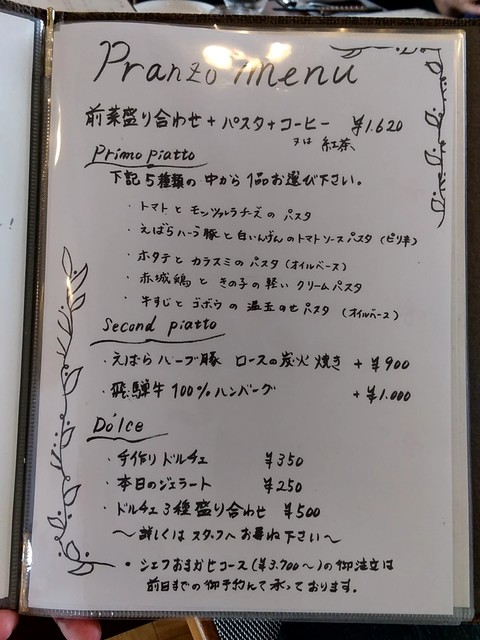 Pranzo menu
前菜盛り合わせ + パスタ + コーヒー ¥1.620
又は 紅茶
Primo piatto
下記5種類の中から1品お選び下さい。
・トマトとモッツァレラチーズのパスタ
・えばらハーブ豚と白いんげんのトマトソースパスタ(ピリ辛)
・ホタテとカラスミのパスタ(オイルベース)
・赤城鶏ときの子の軽いクリームパスタ
・牛すじとゴボウの温玉のせパスタ(オイルベース)
Second piatto
・えばらハーブ豚 ロースの炭火焼き +¥900
・飛騨牛100%ハンバーグ +¥1.000
Dolce
・手作りドルチェ ¥350
・本日のジェラート ¥250
・ドルチェ3種盛り合わせ ¥500
～詳しくはスタッフへお尋ね下さい～
• シェフおまかせコース(¥3.700～)の御注文は
前日までの御予約にて承っております。